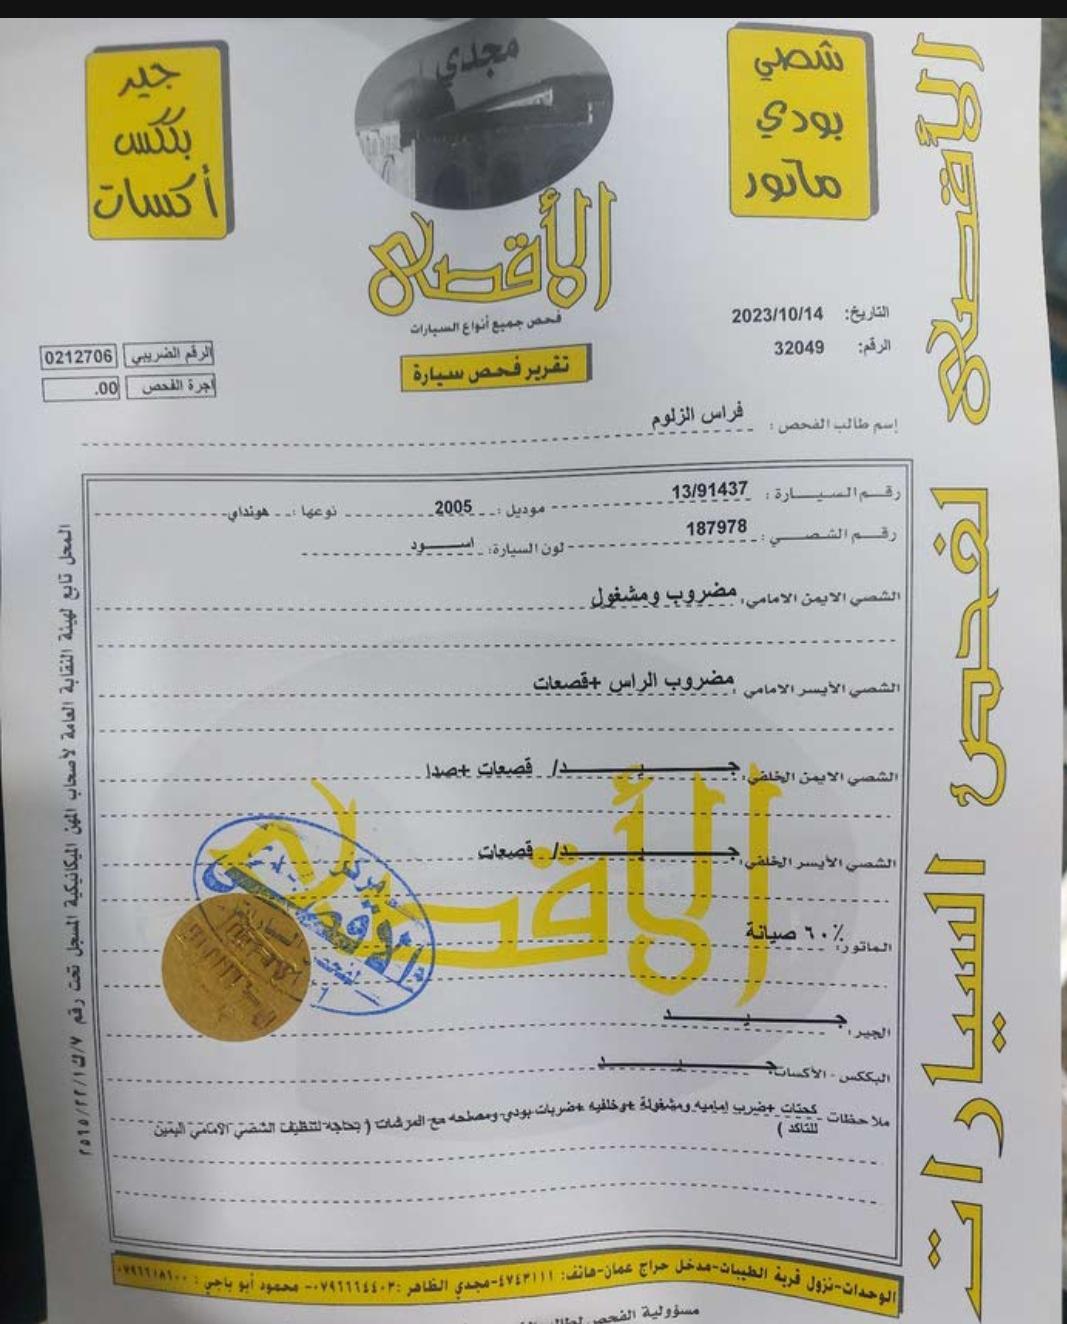 شصي
بودي
ماتور
مجدي
جير
بككس
أكسات
الأقصى
فحص جميع أنواع السيارات
تقرير فحص سيارة
التاريخ: 2023/10/14
الرقم: 32049
الرقم الضريبي 0212706
اجرة الفحص .00
إسم طالب الفحص : فراس الزلوم
رقم السيارة : 13/91437 موديل : 2005 نوعها : هونداي
رقم الشصي : 187978 لون السيارة: اسود
الشصي الايمن الامامي: مضروب ومشغول
الشصي الأيسر الامامي : مضروب الراس +قصعات
الشصي الايمن الخلفي: جيد/ قصعات +صدا
الشصي الأيسر الخلفي: جيد/ قصعات
الماتور: ٦٠٪ صيانة
الجير: جيد
البككس - الأكسات: جيد
ملاحظات كحتات +ضرب اماميه ومشغولة +وخلفيه +ضربات بودي ومصلحه مع المرشات ( بحاجه لتنظيف الشصي الامامي اليمين
للتاكد )
الأقصى
مركز
الأقصى
لفحص
السيارات
الأقصى لفحص السيارات
المحل تابع لهيئة النقابة العامة لأصحاب المهن الميكانيكية المسجل تحت رقم
الوحدات-نزول قرية الطيبات-مدخل حراج عمان-هاتف: ٤٧٤٣١١١-مجدي الظاهر :٠٧٩٦٦٦٤٤٠٣- محمود أبو باجي : ٠٧٩٦٦١٨٦٠٠
مسؤولية الفحص